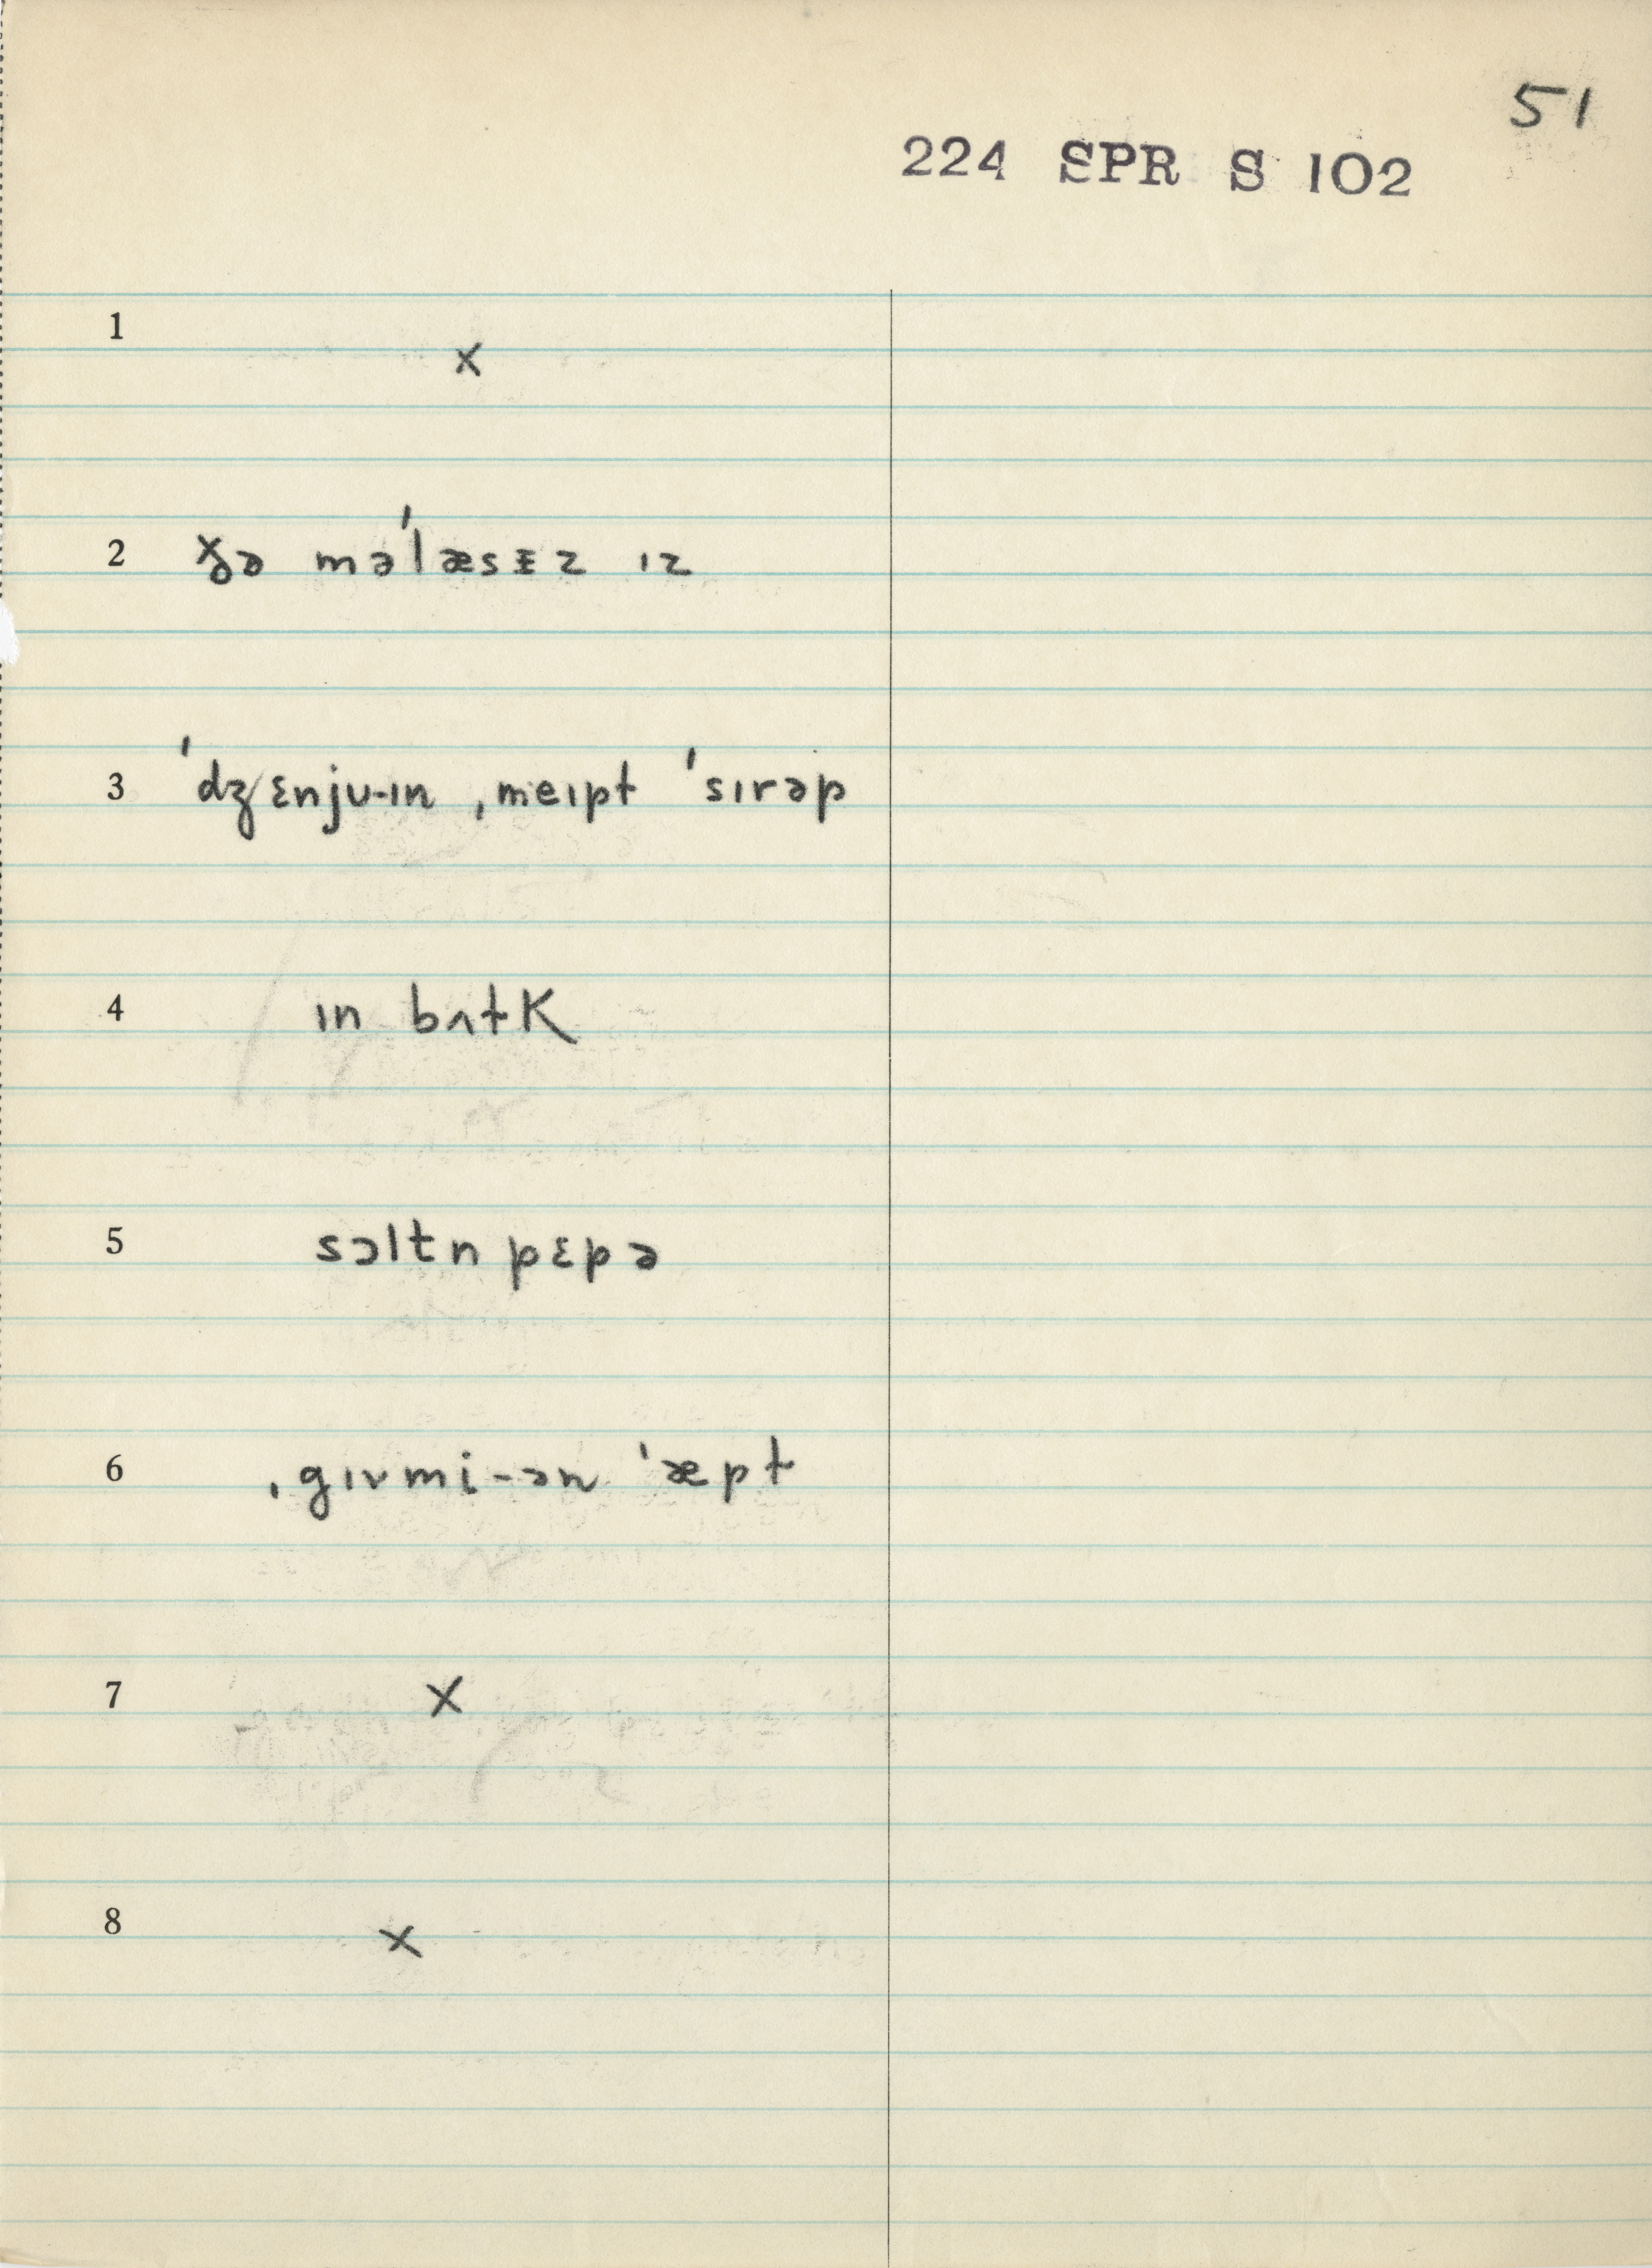 51
224 SPR S 102
1 x
2 ðə məˈlæsɪz ɪz
3 ˈdʒɛnju-ɪn ˌmeɪpt ˈsɪrəp
4 ɪn bʌtK
5 sɔltn pɛpə
6 ˌgɪvmi-ən ˈæpt
7 x
8 x